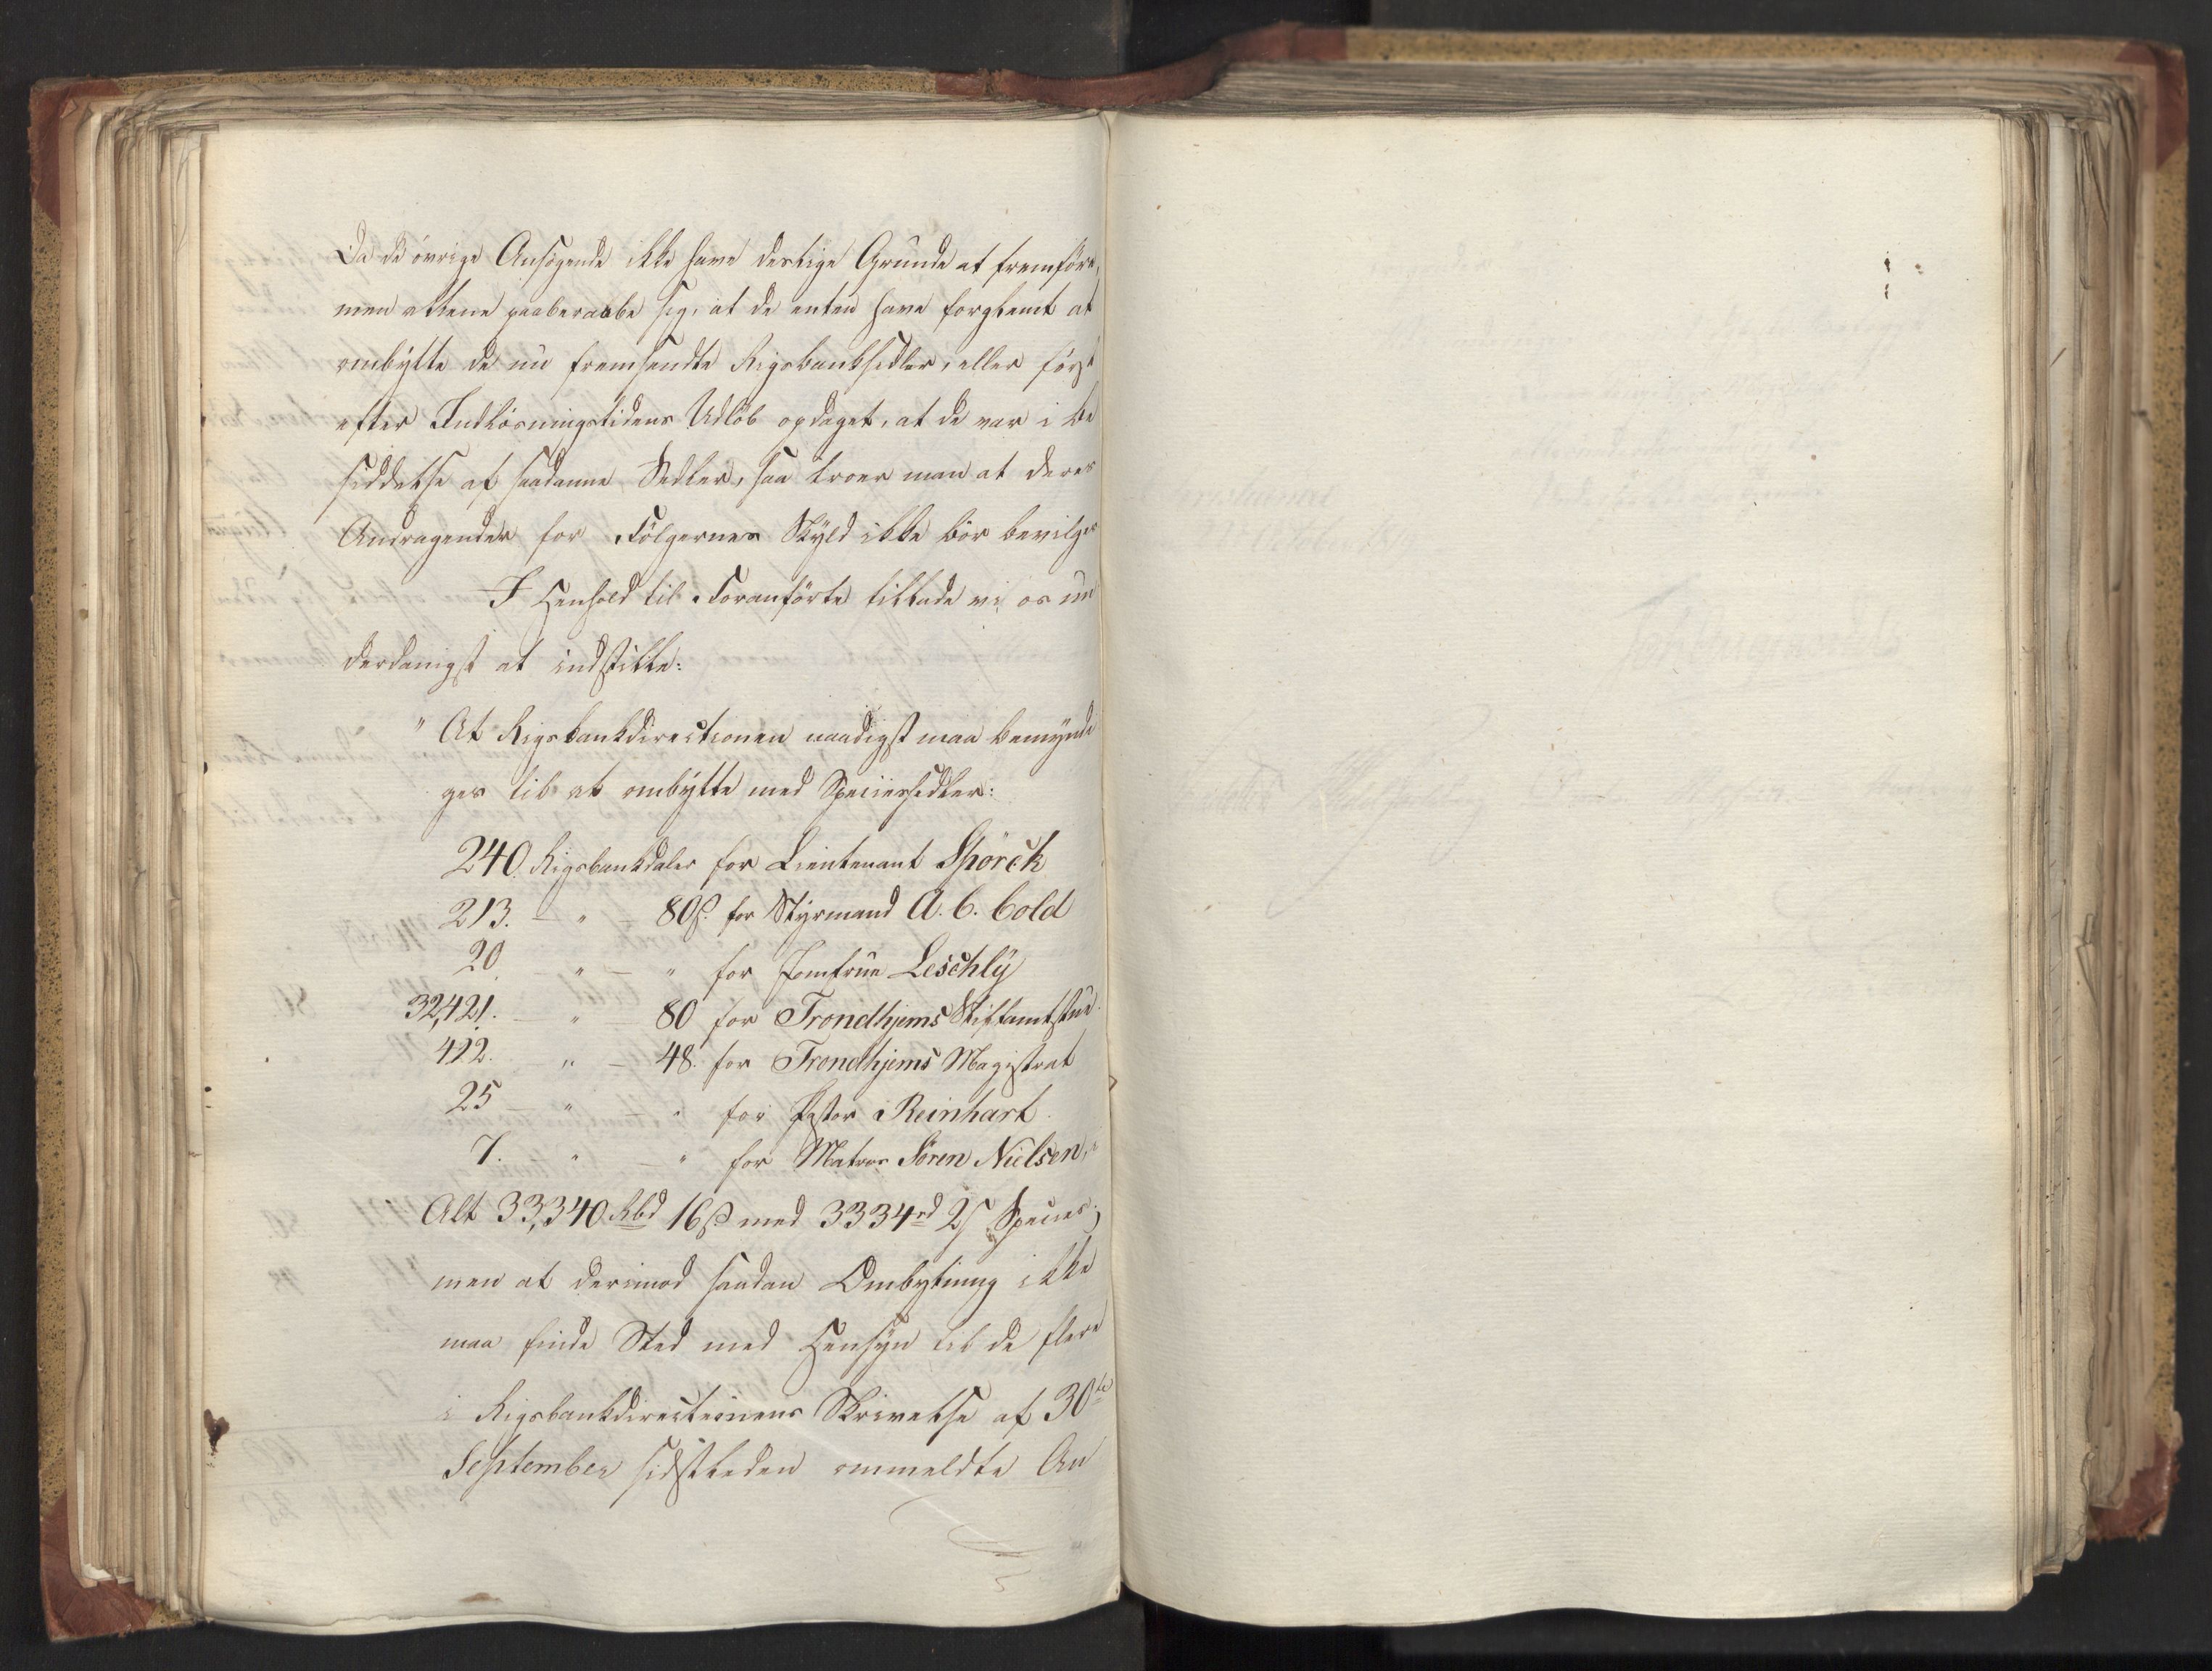 Da de övrige Ansögende ikke have deslige Grunde at fremföre,
men allene paaberaabe sig, at de enten have forglemt at
ombytte de nu fremsendte Rigsbanksedler, eller först
efter Indlösningstidens Udlöb opdaget, at de var i Be
siddelse af saadanne Sedler, saa troer man at deres
Andragender for Fölgernes Skyld ikke bör bevilges
I Henhold til Foranförte tillade vi os un
derdanigst at indstille:
" At Rigsbankdirectionen naadigst maa bemyndi
ges til at ombytte med Speciessedler:
240 Rigsbankdaler for Lieutenant Spörck
213. — " 80ß. for Styrmand A. C. Cold
20 " — " for Jomfrue Leschly
32,421. — " 80 for Trondhjems Stiftamtstue
412. " — 48. for Trondhjems Magistrat
25 — " — " for Pastor Reinhart.
7. " — " for Matros Sören Nielsen,
Alt 33,340 Rbd 16ß med 3334rd 2ß Species;
men at derimod saadan Ombytning ikke
maa finde Sted med Hensyn til de flere
i Rigsbankdirectionens Skrivelse af 30te
September sidstleden ommeldte An